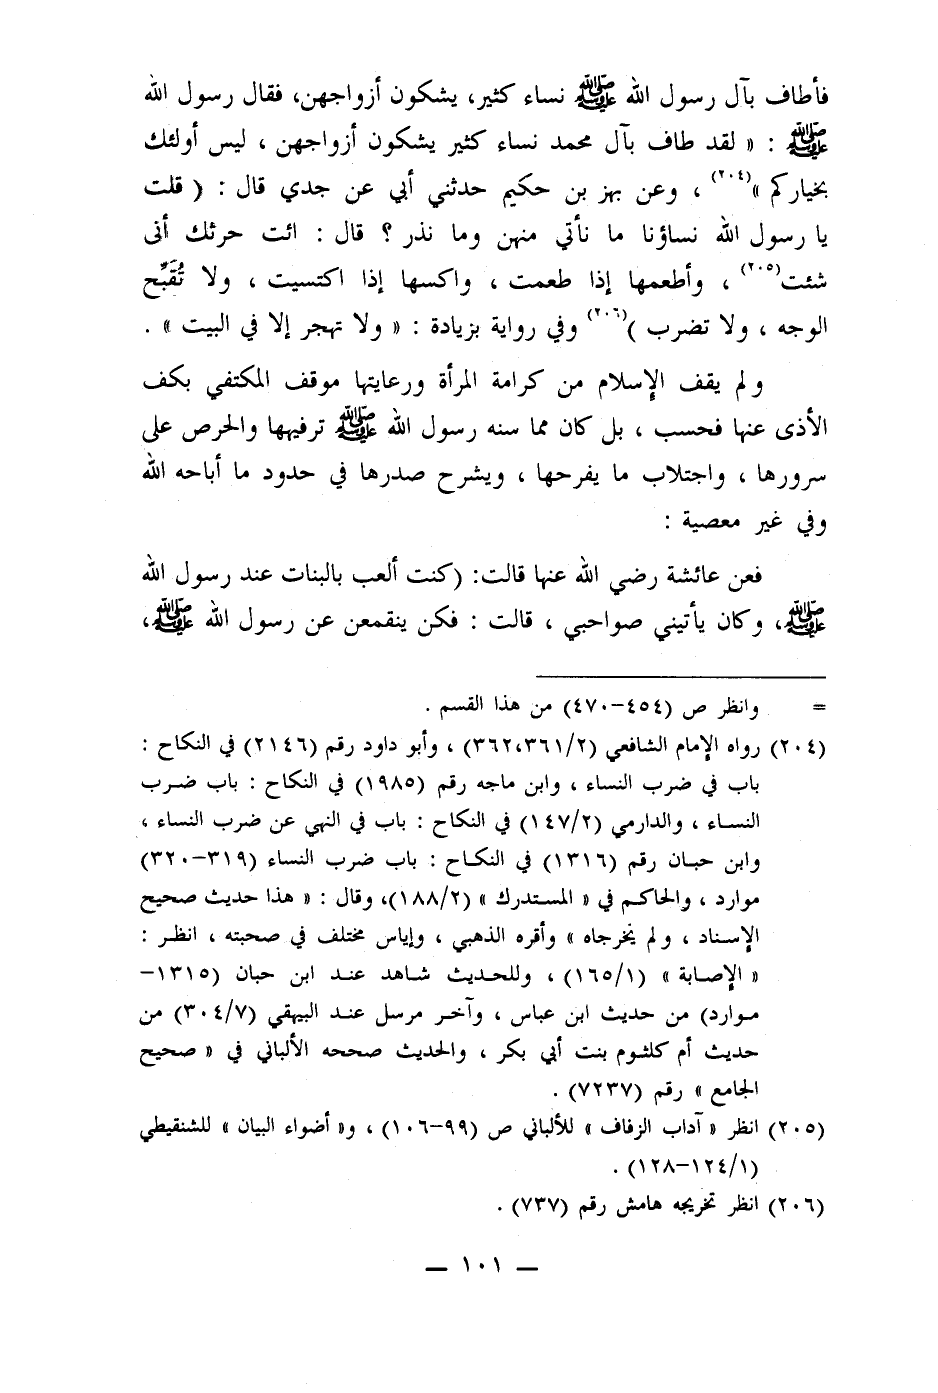 فأطاف بآل رسول الله ﷺ نساء كثير، يشكون أزواجهن، فقال رسول الله
ﷺ : « لقد طاف بآل محمد نساء كثير يشكون أزواجهن ، ليس أولئك
بخياركم »(٢٠٤) ، وعن بهز بن حكيم حدثني أبي عن جدي قال : ( قلت
يا رسول الله نساؤنا ما نأتي منهن وما نذر ؟ قال : ائت حرثك أنى
شئت(٢٠٥) ، وأطعمها إذا طعمت ، واكسها إذا اكتسيت ، ولا تُقَبِّح
الوجه ، ولا تضرب )(٢٠٦) وفي رواية بزيادة : « ولا تهجر إلا في البيت » .
ولم يقف الإسلام من كرامة المرأة ورعايتها موقف المكتفي بكف
الأذى عنها فحسب ، بل كان مما سنه رسول الله ﷺ ترفيهها والحرص على
سرورها ، واجتلاب ما يفرحها ، ويشرح صدرها في حدود ما أباحه الله
وفي غير معصية :
فعن عائشة رضي الله عنها قالت: (كنت ألعب بالبنات عند رسول الله
ﷺ، وكان يأتيني صواحبي ، قالت : فكن ينقمعن عن رسول الله ﷺ،
= وانظر ص (٤٥٤-٤٧٠) من هذا القسم .
(٢٠٤) رواه الإمام الشافعي (٣٦٢،٣٦١/٢) ، وأبو داود رقم (٢١٤٦) في النكاح :
باب في ضرب النساء ، وابن ماجه رقم (١٩٨٥) في النكاح : باب ضرب
النساء ، والدارمي (١٤٧/٢) في النكاح : باب في النهي عن ضرب النساء ،
وابن حبان رقم (١٣١٦) في النكاح : باب ضرب النساء (٣١٩-٣٢٠)
موارد ، والحاكم في « المستدرك » (١٨٨/٢)، وقال : « هذا حديث صحيح
الإسناد ، ولم يخرجاه » وأقره الذهبي ، وإياس مختلف في صحبته ، انظر :
« الإصابة » (١٦٥/١) ، وللحديث شاهد عند ابن حبان (١٣١٥-
موارد) من حديث ابن عباس ، وآخر مرسل عند البيهقي (٣٠٤/٧) من
حديث أم كلثوم بنت أبي بكر ، والحديث صححه الألباني في « صحيح
الجامع » رقم (٧٢٣٧) .
(٢٠٥) انظر « آداب الزفاف » للألباني ص (٩٩-١٠٦) ، و« أضواء البيان » للشنقيطي
(١٢٤/١-١٢٨) .
(٢٠٦) انظر تخريجه هامش رقم (٧٣٧) .
— ١٠١ —